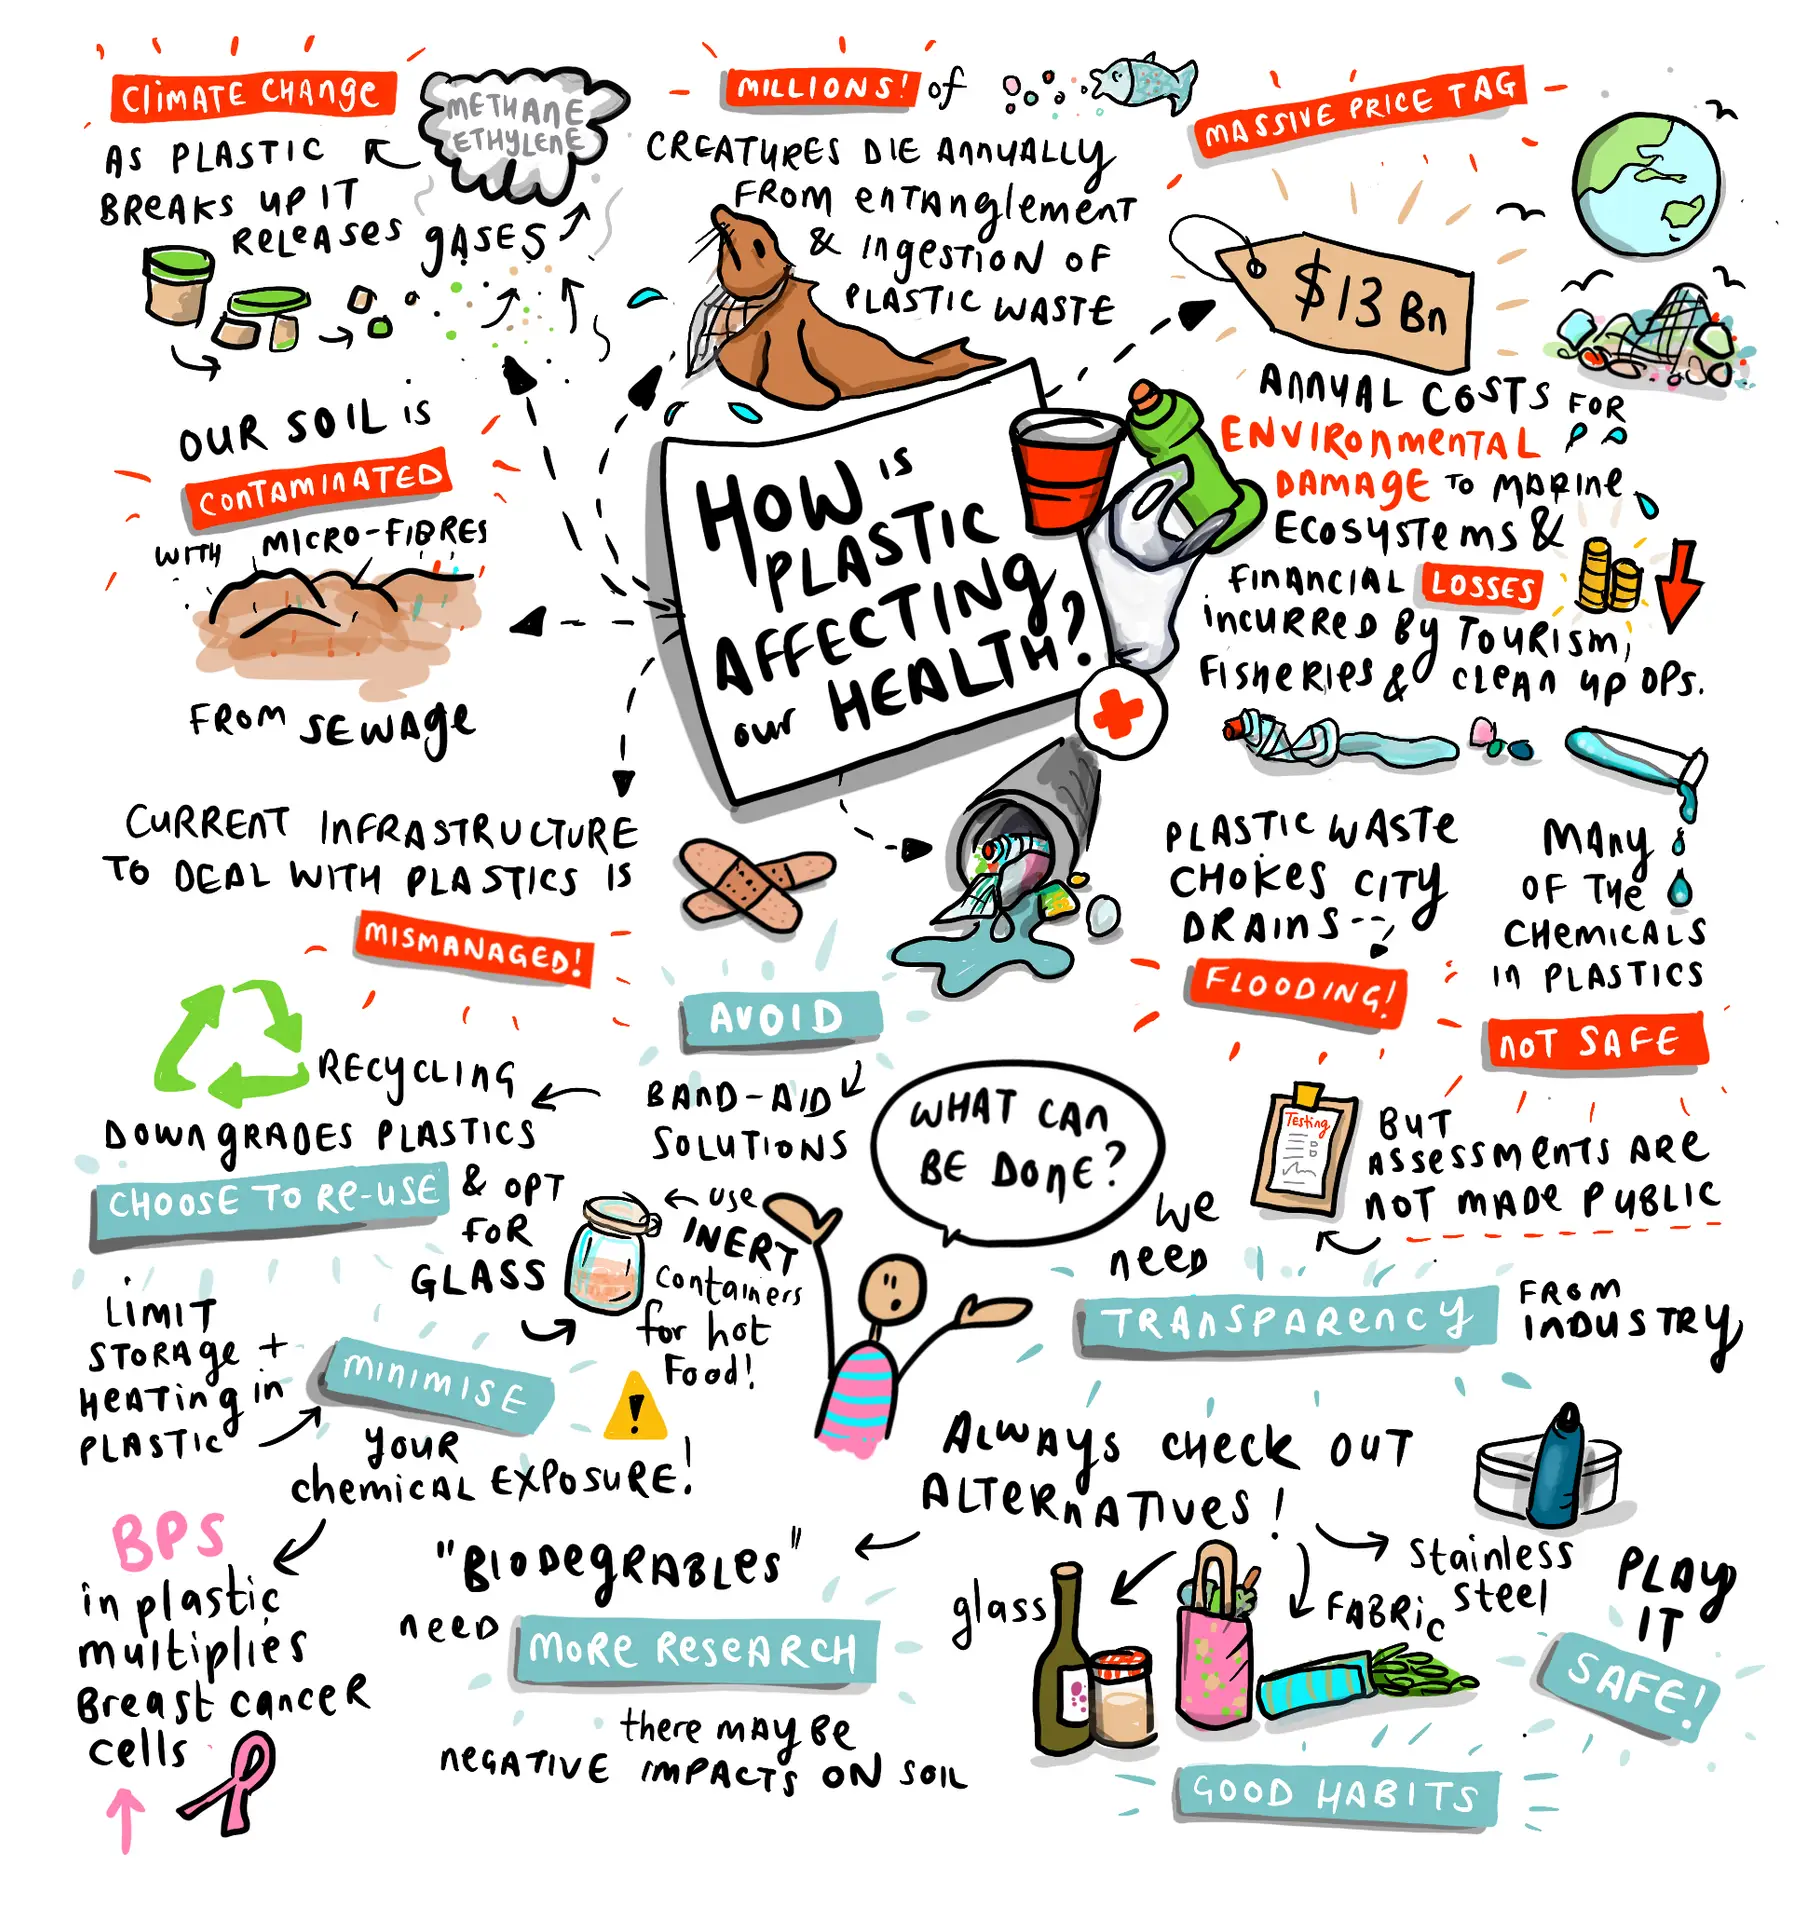 CLIMATE CHANGE
AS PLASTIC
BREAKS UP IT
RELEASES GASES
METHANE
ETHYLENE
MILLIONS! of
CREATURES DIE ANNUALLY
FROM ENTANGLEMENT
& INGESTION OF
PLASTIC WASTE
MASSIVE PRICE TAG
$13 Bn
ANNUAL COSTS FOR
ENVIRONMENTAL
DAMAGE TO MARINE
ECOSYSTEMS &
FINANCIAL LOSSES
INCURRED BY TOURISM,
FISHERIES & CLEAN UP OPS.
OUR SOIL is
CONTAMINATED
WITH MICRO-FIBRES
FROM SEWAGE
HOW is
PLASTIC
AFFECTING
our HEALTH?
CURRENT INFRASTRUCTURE
TO DEAL WITH PLASTICS IS
MISMANAGED!
PLASTIC WASTE
CHOKES CITY
DRAINS--
FLOODING!
MANY
OF THE
CHEMICALS
IN PLASTICS
NOT SAFE
Testing
BUT
ASSESSMENTS ARE
NOT MADE PUBLIC
WHAT CAN
BE DONE?
AVOID
BAND-AID
SOLUTIONS
RECYCLING
DOWNGRADES PLASTICS
CHOOSE TO RE-USE
& OPT
FOR
GLASS
USE
INERT
containers
for hot
Food!
LIMIT
STORAGE +
HEATING in
PLASTIC
MINIMISE
YOUR
chemical EXPOSURE!
!
BPS
in plastic
multiplies
Breast cancer
cells
WE
NEED
TRANSPARENCY
FROM
INDUSTRY
ALWAYS CHECK OUT
ALTERNATIVES!
"BIODEGRABLES"
NEED
MORE RESEARCH
there MAY BE
NEGATIVE IMPACTS ON SOIL
glass
FABRIC
Stainless
steel
PLAY
IT
SAFE!
GOOD HABITS